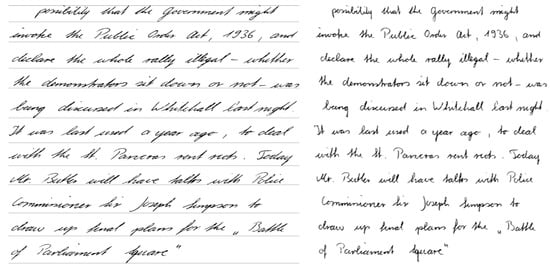 possibility that the Government might
invoke the Public Order Act, 1936, and
declare the whole rally illegal – whether
the demonstrators sit down or not – was
being discussed in Whitehall last night.
It was last used a year ago, to deal
with the St. Pancras rent riots. Today
Mr. Butler will have talks with Police
Commissioner Sir Joseph Simpson to
draw up final plans for the „Battle
of Parliament Square"
possibility that the Government might
invoke the Public Order Act, 1936, and
declare the whole rally illegal – whether
the demonstrators sit down or not – was
being discussed in Whitehall last night.
It was last used a year ago, to deal
with the St. Pancras rent riots. Today
Mr. Butler will have talks with Police
Commissioner Sir Joseph Simpson to
draw up final plans for the „Battle
of Parliament Square"